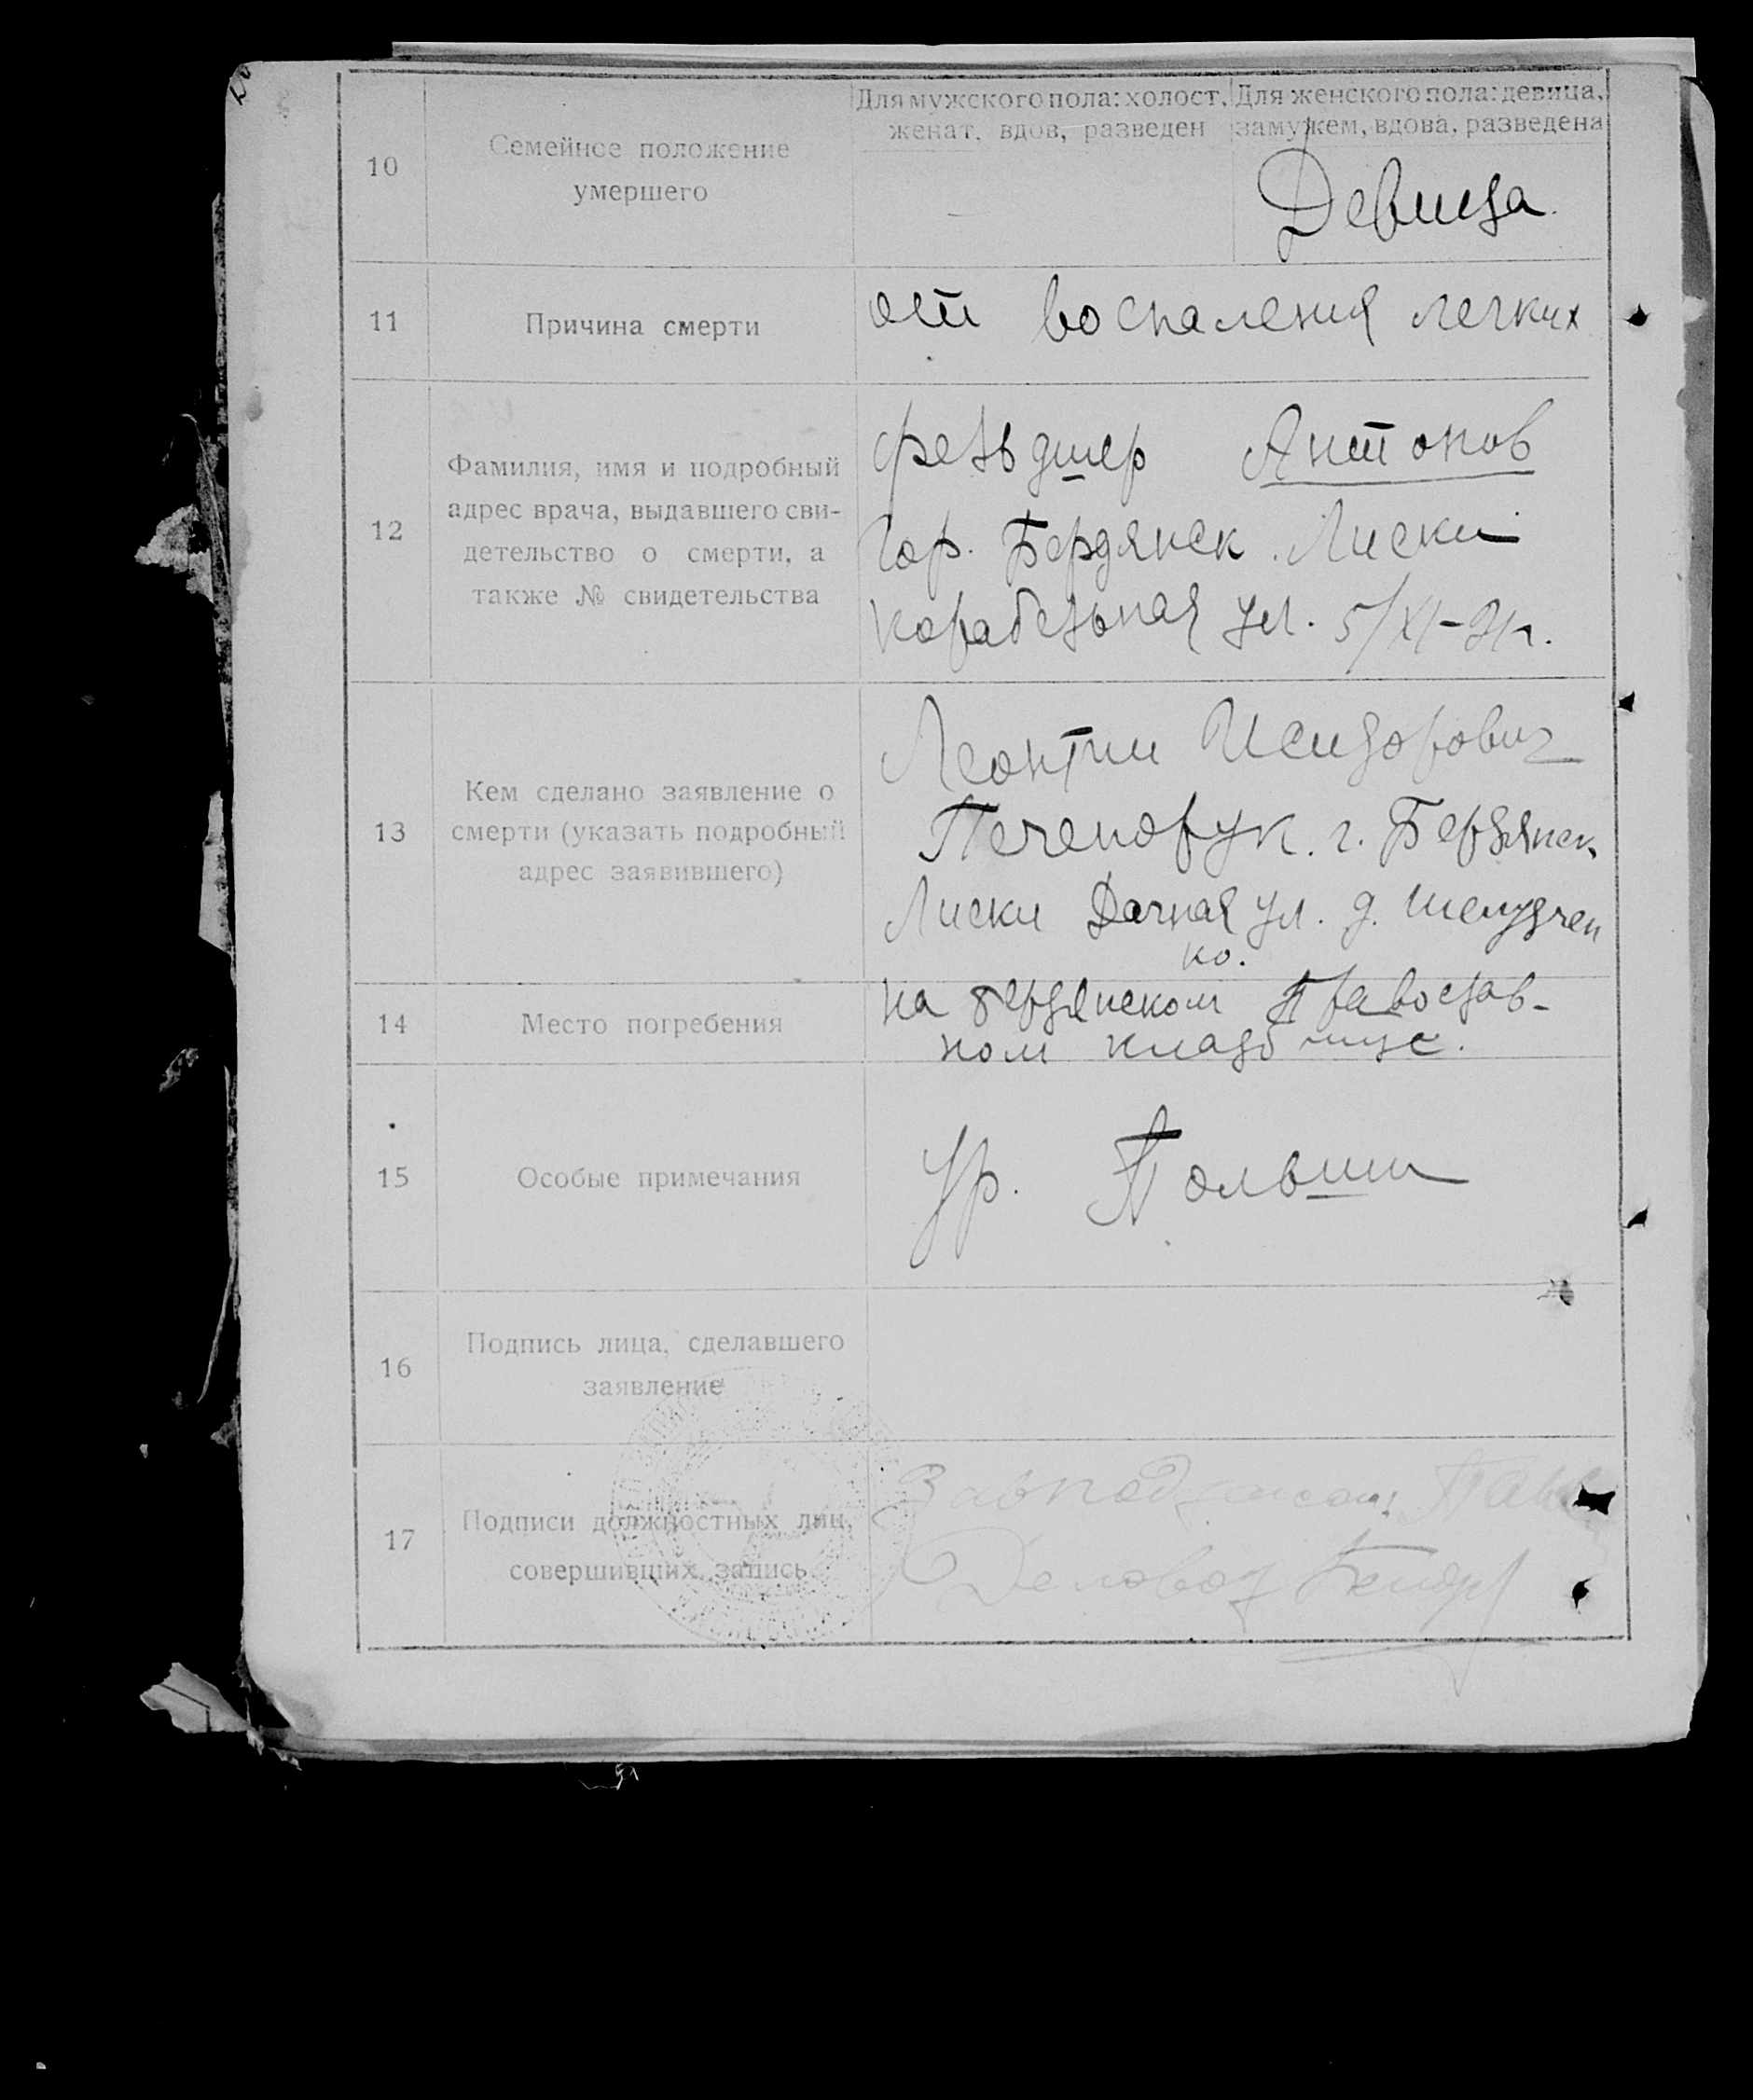 10
Семейное положение
умершего
Для мужского пола: холост,
женат, вдов, разведен
Для женского пола: девица,
замужем, вдова, разведена
Девица.
11
Причина смерти
от воспаления легких
12
Фамилия, имя и подробный
адрес врача, выдавшего сви-
детельство о смерти, а
также № свидетельства
фельдшер Антонов
Гор. Бердянск. Лиски
Корабельная ул. 5/XI-21г.
13
Кем сделано заявление о
смерти (указать подробный
адрес заявившего)
Леонтии Исидорович
Печенорук. г. Бердянск
Лиски Дачная ул. д. Шелудчен
ко.
14
Место погребения
на бердянском Православ-
ном кладбище.
15
Особые примечания
Ур. Польши
16
Подпись лица, сделавшего
заявление
17
Подписи должностных лиц,
совершивших запись
Деловод